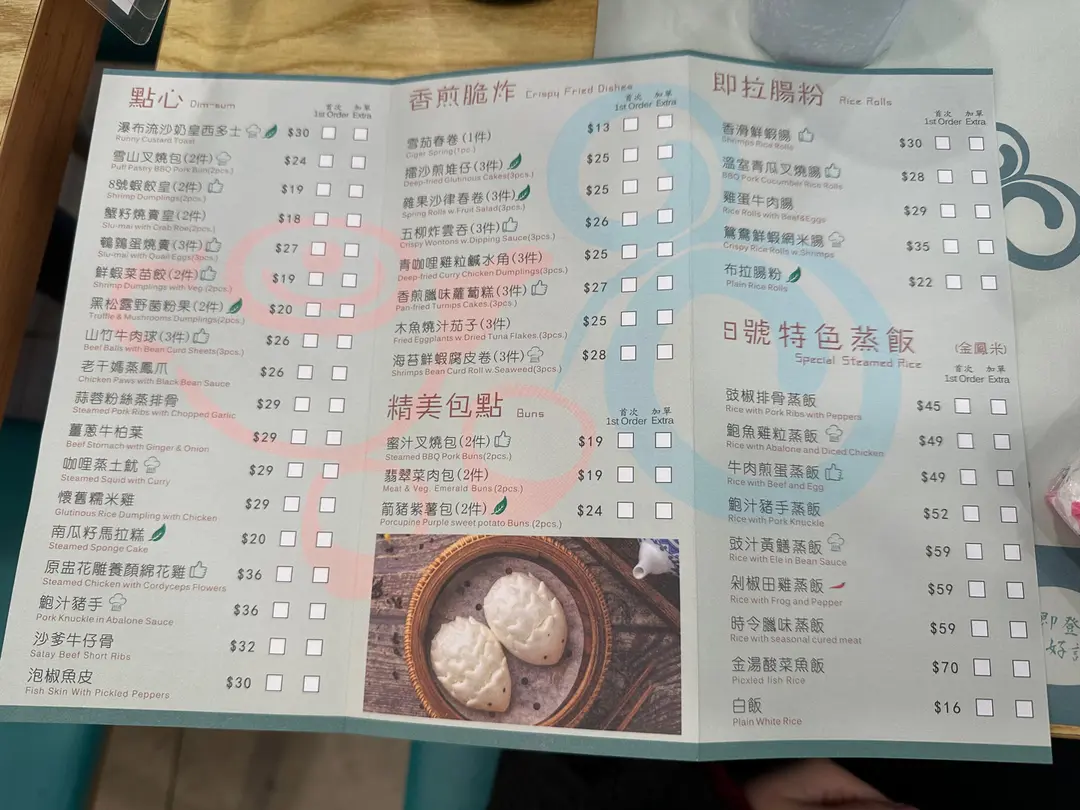 點心 Dim-sum
首次 加單
1st Order Extra
瀑布流沙奶皇西多士 $30
Runny Custard Toast
雪山叉燒包(2件) $24
Puff Pastry BBQ Pork Bun(2pcs.)
8號蝦餃皇(2件) $19
Shrimp Dumplings(2pcs.)
蟹籽燒賣皇(2件) $18
Siu-mai with Crab Roe(2pcs.)
鵪鶉蛋燒賣(3件) $27
Siu-mai with Quail Eggs(3pcs.)
鮮蝦菜苗餃(2件) $19
Shrimp Dumplings with Veg.(2pcs.)
黑松露野菌粉果(2件) $20
Truffle & Mushrooms Dumplings(2pcs.)
山竹牛肉球(3件) $26
Beef Balls with Bean Curd Sheets(3pcs.)
老干媽蒸鳳爪 $26
Chicken Paws with Black Bean Sauce
蒜蓉粉絲蒸排骨 $29
Steamed Pork Ribs with Chopped Garlic
薑蔥牛柏葉 $29
Beef Stomach with Ginger & Onion
咖哩蒸土魷 $29
Steamed Squid with Curry
懷舊糯米雞 $29
Glutinous Rice Dumpling with Chicken
南瓜籽馬拉糕 $20
Steamed Sponge Cake
原盅花雕養顏綿花雞 $36
Steamed Chicken with Cordyceps Flowers
鮑汁豬手 $36
Pork Knuckle in Abalone Sauce
沙爹牛仔骨 $32
Satay Beef Short Ribs
泡椒魚皮 $30
Fish Skin With Pickled Peppers
香煎脆炸 Crispy Fried Dishes
首次 加單
1st Order Extra
雪茄春卷(1件) $13
Cigar Spring(1pc.)
擂沙煎堆仔(3件) $25
Deep-fried Glutinous Cakes(3pcs.)
雜果沙律春卷(3件) $25
Spring Rolls w.Fruit Salad(3pcs.)
五柳炸雲吞(3件) $26
Crispy Wontons w.Dipping Sauce(3pcs.)
青咖哩雞粒鹹水角(3件) $25
Deep-fried Curry Chicken Dumplings(3pcs.)
香煎臘味蘿蔔糕(3件) $27
Pan-fried Turnips Cakes.(3pcs.)
木魚燒汁茄子(3件) $25
Fried Eggplants w.Dried Tuna Flakes.(3pcs.)
海苔鮮蝦腐皮卷(3件) $28
Shrimps Bean Curd Roll w.Seaweed(3pcs.)
精美包點 Buns
首次 加單
1st Order Extra
蜜汁叉燒包(2件) $19
Steamed BBQ Pork Buns(2pcs.)
翡翠菜肉包(2件) $19
Meat & Veg. Emerald Buns (2pcs.)
箭豬紫薯包(2件) $24
Porcupine Purple sweet potato Buns (2pcs.)
即拉腸粉 Rice Rolls
首次 加單
1st Order Extra
香滑鮮蝦腸 $30
Shrimps Rice Rolls
溫室青瓜叉燒腸 $28
BBQ Pork Cucumber Rice Rolls
雞蛋牛肉腸 $29
Rice Rolls with Beef&Eggs
鴛鴦鮮蝦網米腸 $35
Crispy Rice Rolls w.Shrimps
布拉腸粉 $22
Plain Rice Rolls
8號特色蒸飯 (金鳳米)
Special Steamed Rice
首次 加單
1st Order Extra
豉椒排骨蒸飯 $45
Rice with Pork Ribs with Peppers
鮑魚雞粒蒸飯 $49
Rice with Abalone and Diced Chicken
牛肉煎蛋蒸飯 $49
Rice with Beef and Egg
鮑汁豬手蒸飯 $52
Rice with Pork Knuckle
豉汁黃鱔蒸飯 $59
Rice with Ele in Bean Sauce
剁椒田雞蒸飯 $59
Rice with Frog and Pepper
時令臘味蒸飯 $59
Rice with seasonal cured meat
金湯酸菜魚飯 $70
Picxled Iish Rice
白飯 $16
Plain White Rice
即登
好